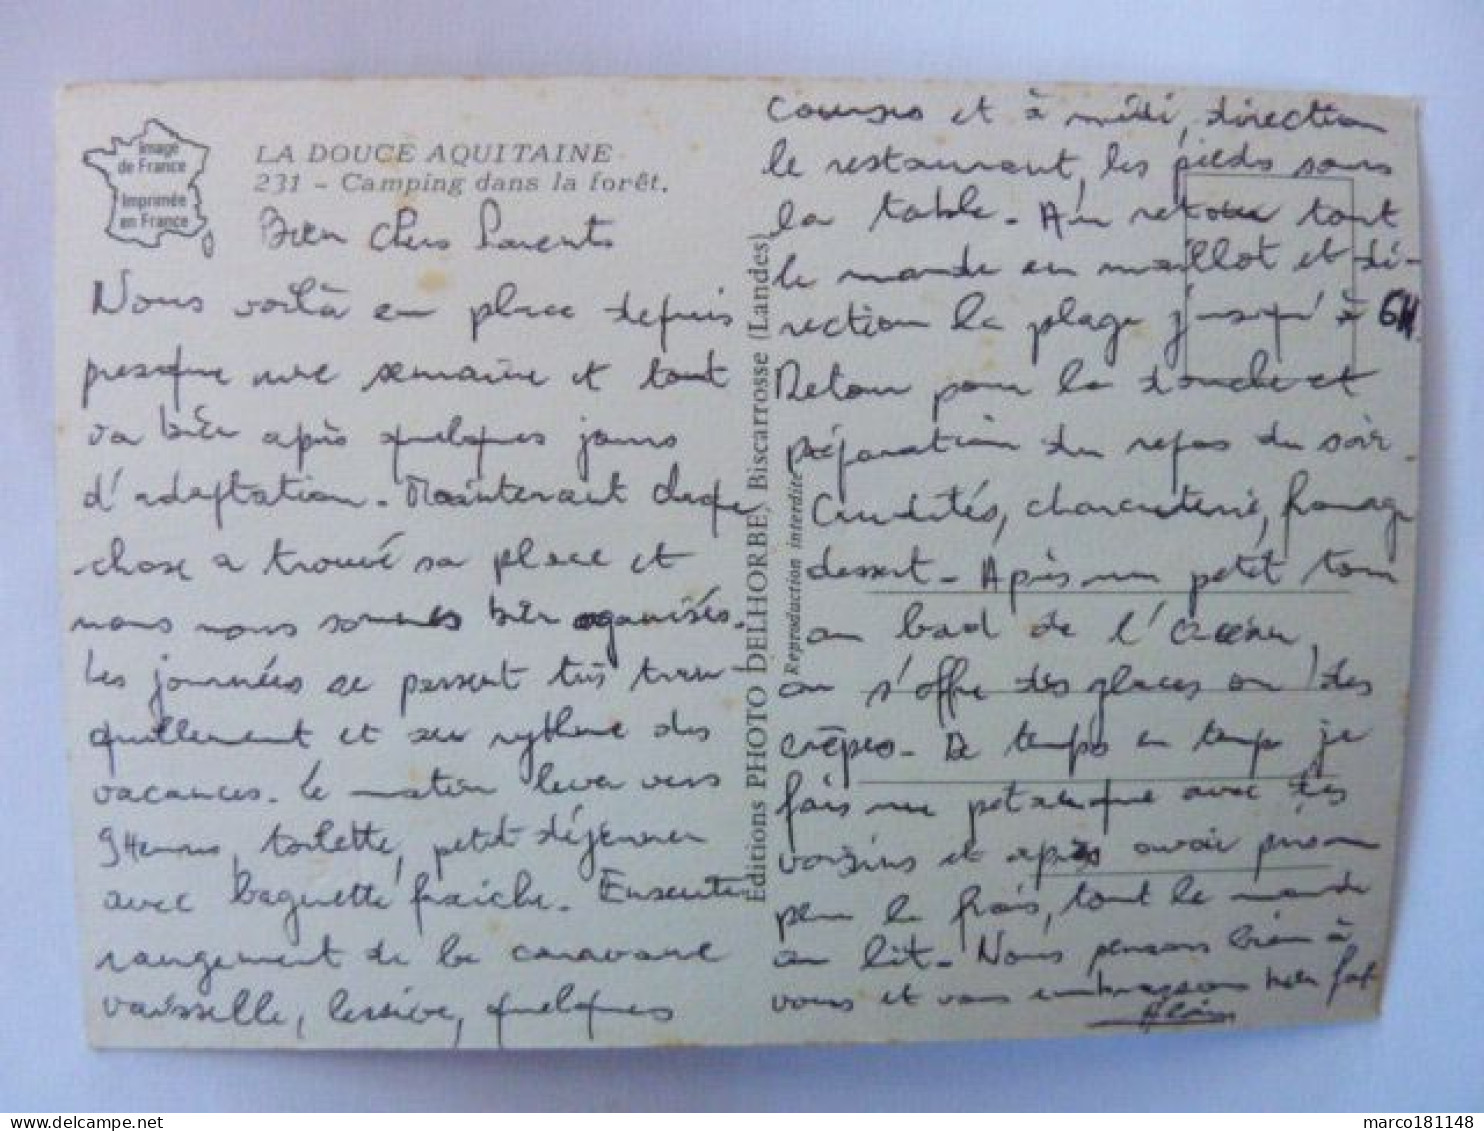 Image
de France
Imprimée
en France
LA DOUCE AQUITAINE
231 - Camping dans la forêt.
Bien Chers Parents
Nous voilà en place depuis
presque une semaine et tout
va bien après quelques jours
d'adaptation. Maintenant chaque
chose a trouvé sa place et
nous nous sommes bien organisés.
Les journées se passent très tran-
quillement et au rythme des
vacances. Le matin lever vers
9Heures, toilette, petit déjeuner
avec baguette fraiche. Ensuite
rangement de la caravane
vaisselle, lessive, quelques
Editions PHOTO DELHORBE, Biscarrosse (Landes)
Reproduction interdite
courses et à midi, direction
le restaurant, les pieds sous
la table. Au retour tout
le monde en maillot et di-
rection la plage jusqu'à 6H.
Retour pour la douche et
préparation du repas du soir.
Crudités, charcuterie, fromage
dessert. Après un petit tour
au bord de l'océan,
on s'offre des glaces ou des
crêpes. De temps en temps je
fais une pétanque avec des
voisins et après avoir pris un
peu le frais, tout le monde
au lit. Nous pensons bien à
vous et vous embrassons bien fort
Alain
marco181148